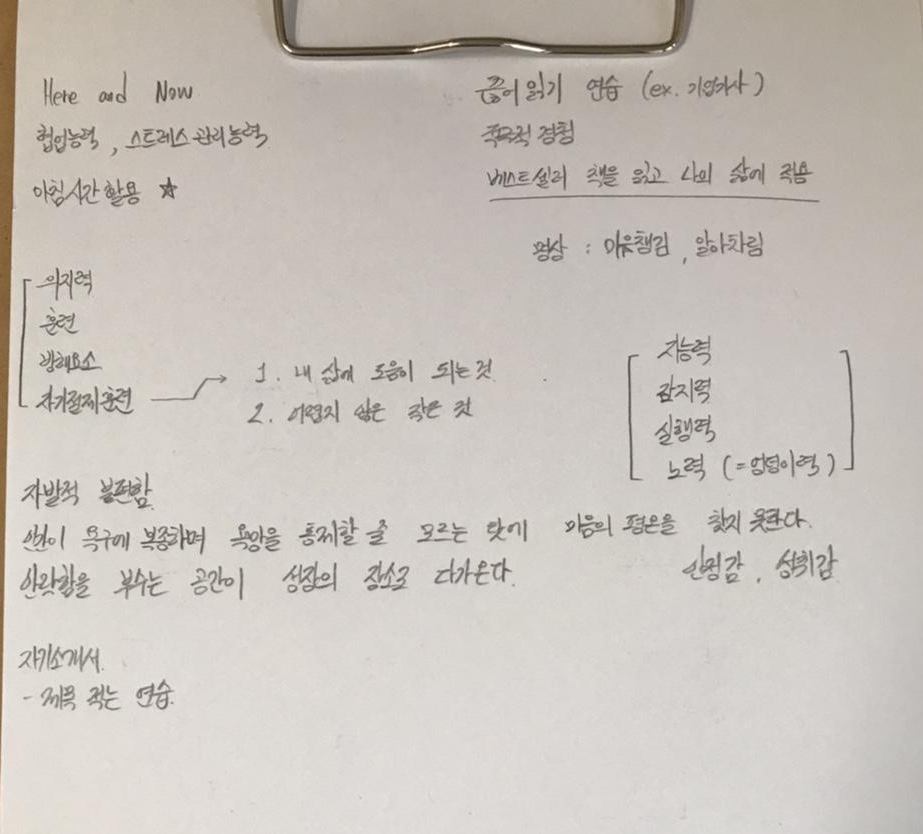 Here and Now
협업능력, 스트레스 관리능력
아침시간 활용 ☆
끊어 읽기 연습 (ex. 기업기사)
경험
베스트셀러 책을 읽고 나의 삶에 적용
명상 : 마음챙김, 알아차림
의지력
훈련
방해요소
자기절제훈련 →
1. 내 삶에 도움이 되는 것
2. 어렵지 않은 작은 것
지능력
감지력
실행력
노력 (=엉덩이력)
자발적 불편함
욕구에 복종하며 욕망을 통제할 줄 모르는 탓에 마음의 평온을 찾지 못한다.
안락함을 부수는 공간이 성장의 장소로 다가온다.
안정감, 성취감
자기소개서
- 제목 적는 연습